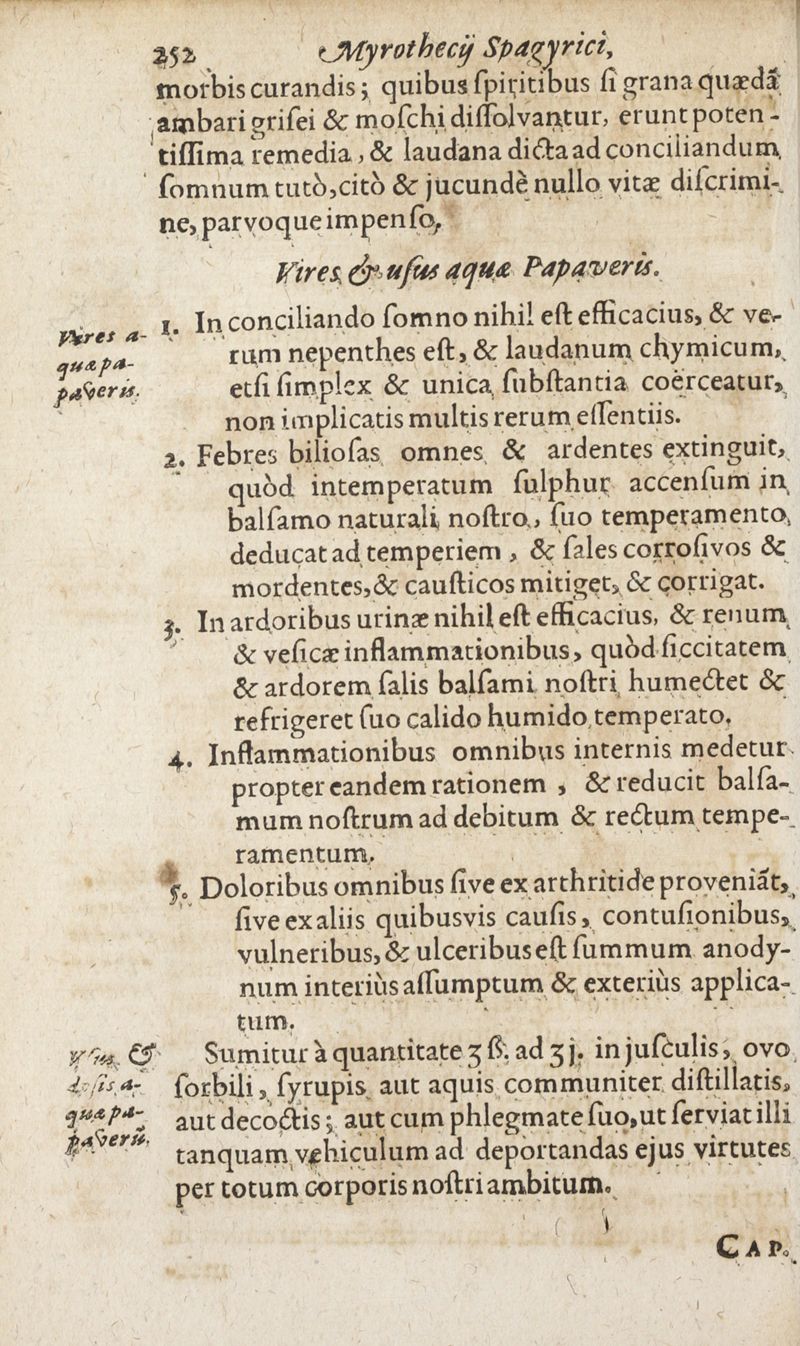 252 Myrothecij Spagyrici,
morbis curandis; quibus ſpiritibus ſi grana quædã
ambari griſei & moſchi diſſolvantur, erunt poten-
tiſſima remedia, & laudana dicta ad conciliandum
ſomnum tutò, citò & jucundè nullo vitæ diſcrimi-
ne, parvoque impenſo,
Vires & uſus aquæ Papaveris.
Vires a-
quæ pa-
paveris.
1. In conciliando ſomno nihil eſt efficacius, & ve-
rum nepenthes eſt, & laudanum chymicum,
etſi ſimplex & unica ſubſtantia coërceatur,
non implicatis multis rerum eſſentiis.
2. Febres bilioſas omnes & ardentes extinguit,
quòd intemperatum ſulphur accenſum in
balſamo naturali noſtro, ſuo temperamento
deducat ad temperiem, & ſales corroſivos &
mordentes, & cauſticos mitiget, & corrigat.
3. In ardoribus urinæ nihil eſt efficacius, & renum
& veſicæ inflammationibus, quòd ſiccitatem
& ardorem ſalis balſami noſtri humectet &
refrigeret ſuo calido humido temperato.
4. Inflammationibus omnibus internis medetur
propter eandem rationem, & reducit balſa-
mum noſtrum ad debitum & rectum tempe-
ramentum.
5. Doloribus omnibus ſive ex arthritide proveniãt,
ſive ex aliis quibusvis cauſis, contuſionibus,
vulneribus, & ulceribus eſt ſummum anody-
num interiùs aſſumptum & exteriùs applica-
tum.
Vſus &
doſis a-
quæ pa-
paveris.
Sumitur à quantitate ʒ ß. ad ʒ j. in juſculis, ovo
ſorbili, ſyrupis aut aquis communiter diſtillatis,
aut decoctis; aut cum phlegmate ſuo, ut ſerviat illi
tanquam vehiculum ad deportandas ejus virtutes
per totum corporis noſtri ambitum.
CAP.